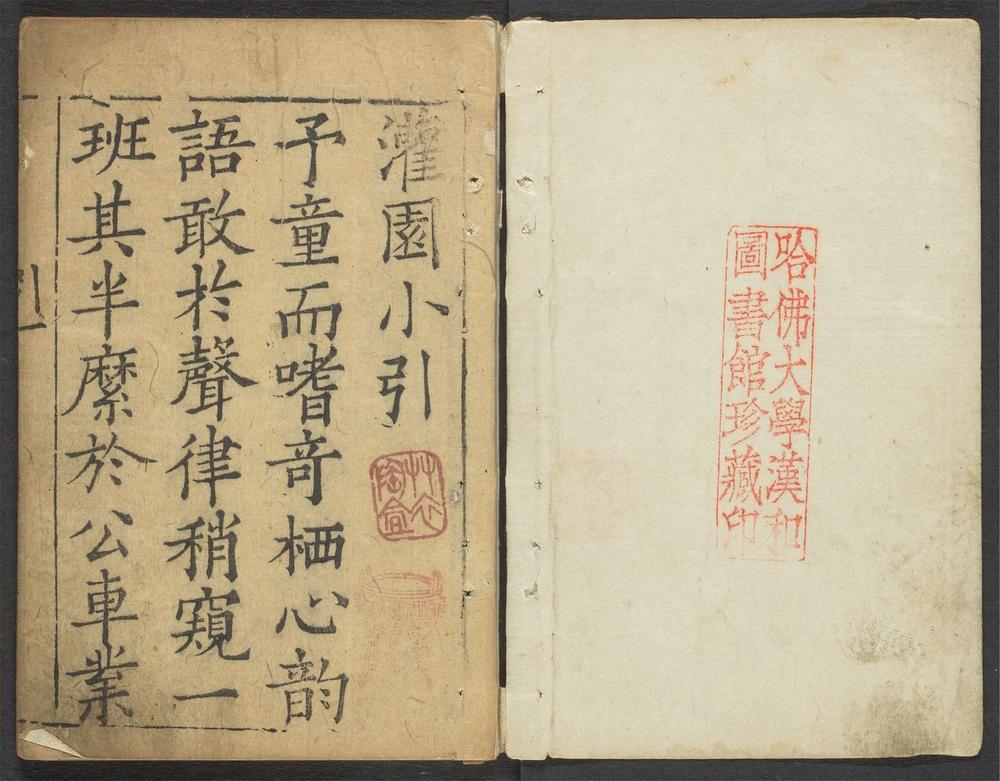 哈佛大學漢和
圖書館珍藏印
灌園小引
予童而嗜奇栖心韵
語敢於聲律稍窺一
班其半縻於公車業
引一